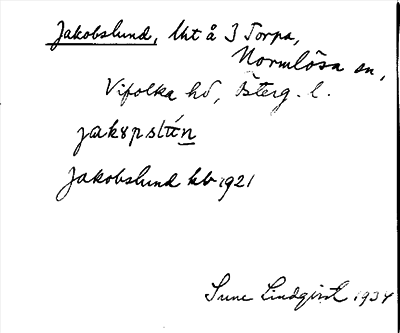 Jakobslund, Utå 3 Torpa,
Normlösa sn,
Vifolka hd, Österg. l.
jakɤpslún
Jakobslund kb 1921
Sune Lindqvist 1934